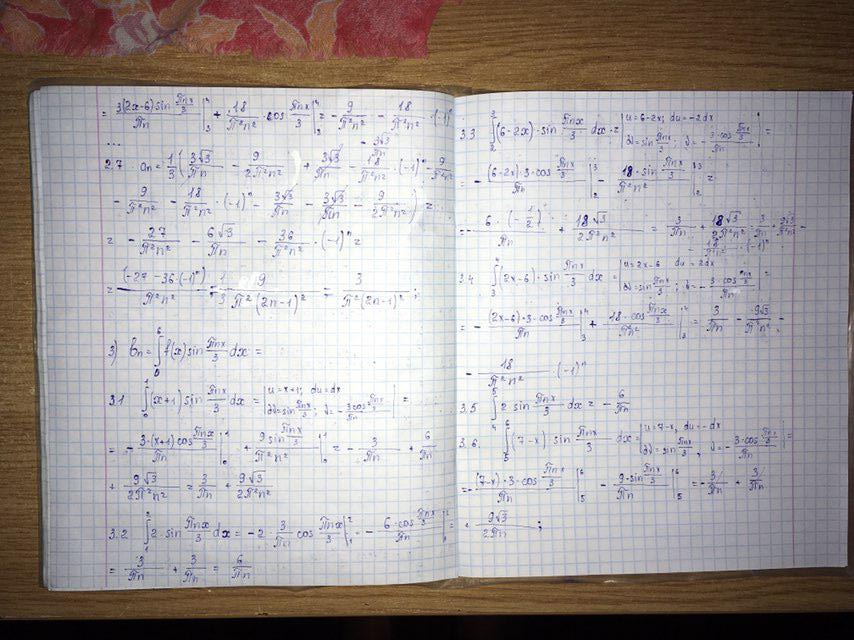 = 3(2x-6) sin πnx/3 / πn |⁴₃ + 18/π²n² · cos πnx/3 |⁴₃ = - 9/π²n² - 18/π²n² · (-1)ⁿ
- 3√3/πn
...
2.7 aₙ = 1/3 ( 3√3/πn - 9/2π²n² + 3√3/πn - 18/π²n² · (-1)ⁿ - 9/π²n²
- 9/π²n² - 18/π²n² · (-1)ⁿ - 3√3/πn - 3√3/πn - 9/2π²n² ) =
= - 27/π²n² - 6√3/πn - 36/π²n² · (-1)ⁿ =
= (-27 - 36·(-1)ⁿ)/π²n² = 1/3 9/π²(2n-1)² = 3/π²(2n-1)² ;
3) bₙ = ∫₀⁶ f(x) sin πnx/3 dx =
3.1 ∫₀¹ (x+1) sin πnx/3 dx = | u = x+1; du = dx
dV = sin πnx/3 ; V = - 3cos πnx/3 / πn | =
= - 3·(x+1) cos πnx/3 / πn |¹₀ + 9 sin πnx/3 / π²n² |¹₀ = - 3/πn + 6/πn
+ 9√3/2π²n² = 3/πn + 9√3/2π²n²
3.2 ∫₁² 2 sin πnx/3 dx = -2 · 3/πn cos πnx/3 |²₁ = - 6·cos πnx/3 / πn |²₁ =
= 3/πn + 3/πn = 6/πn
3.3 ∫₂³ (6-2x) · sin πnx/3 dx = | u = 6-2x; du = -2dx
dV = sin πnx/3 ; V = - 3·cos πnx/3 / πn | =
= - (6-2x)·3·cos πnx/3 / πn |³₂ - 18·sin πnx/3 / π²n² |³₂ =
= - 6·(-1/2)/πn + 18√3/2π²n² = 3/πn + 18√3/2π²n²
3.4 ∫₃⁴ (2x-6) · sin πnx/3 dx = | u = 2x-6 du = 2dx
dV = sin πnx/3 ; V = - 3·cos πnx/3 / πn | =
= - (2x-6)·3·cos πnx/3 / πn |⁴₃ + 18·cos πnx/3 / πn² |⁴₃ = 3/πn - 9√3/π²n² -
- 18/π²n² · (-1)ⁿ
3.5 ∫₄⁵ 2 sin πnx/3 dx = - 6/πn
3.6. ∫₅⁶ (7-x) · sin πnx/3 dx = | u = 7-x, du = -dx
dV = sin πnx/3 , V = - 3·cos πnx/3 / πn | =
= - (7-x)·3·cos πnx/3 / πn |⁶₅ - 9·sin πnx/3 / πn |⁶₅ = - 3/πn + 3/πn
+ 9√3/2πn ;